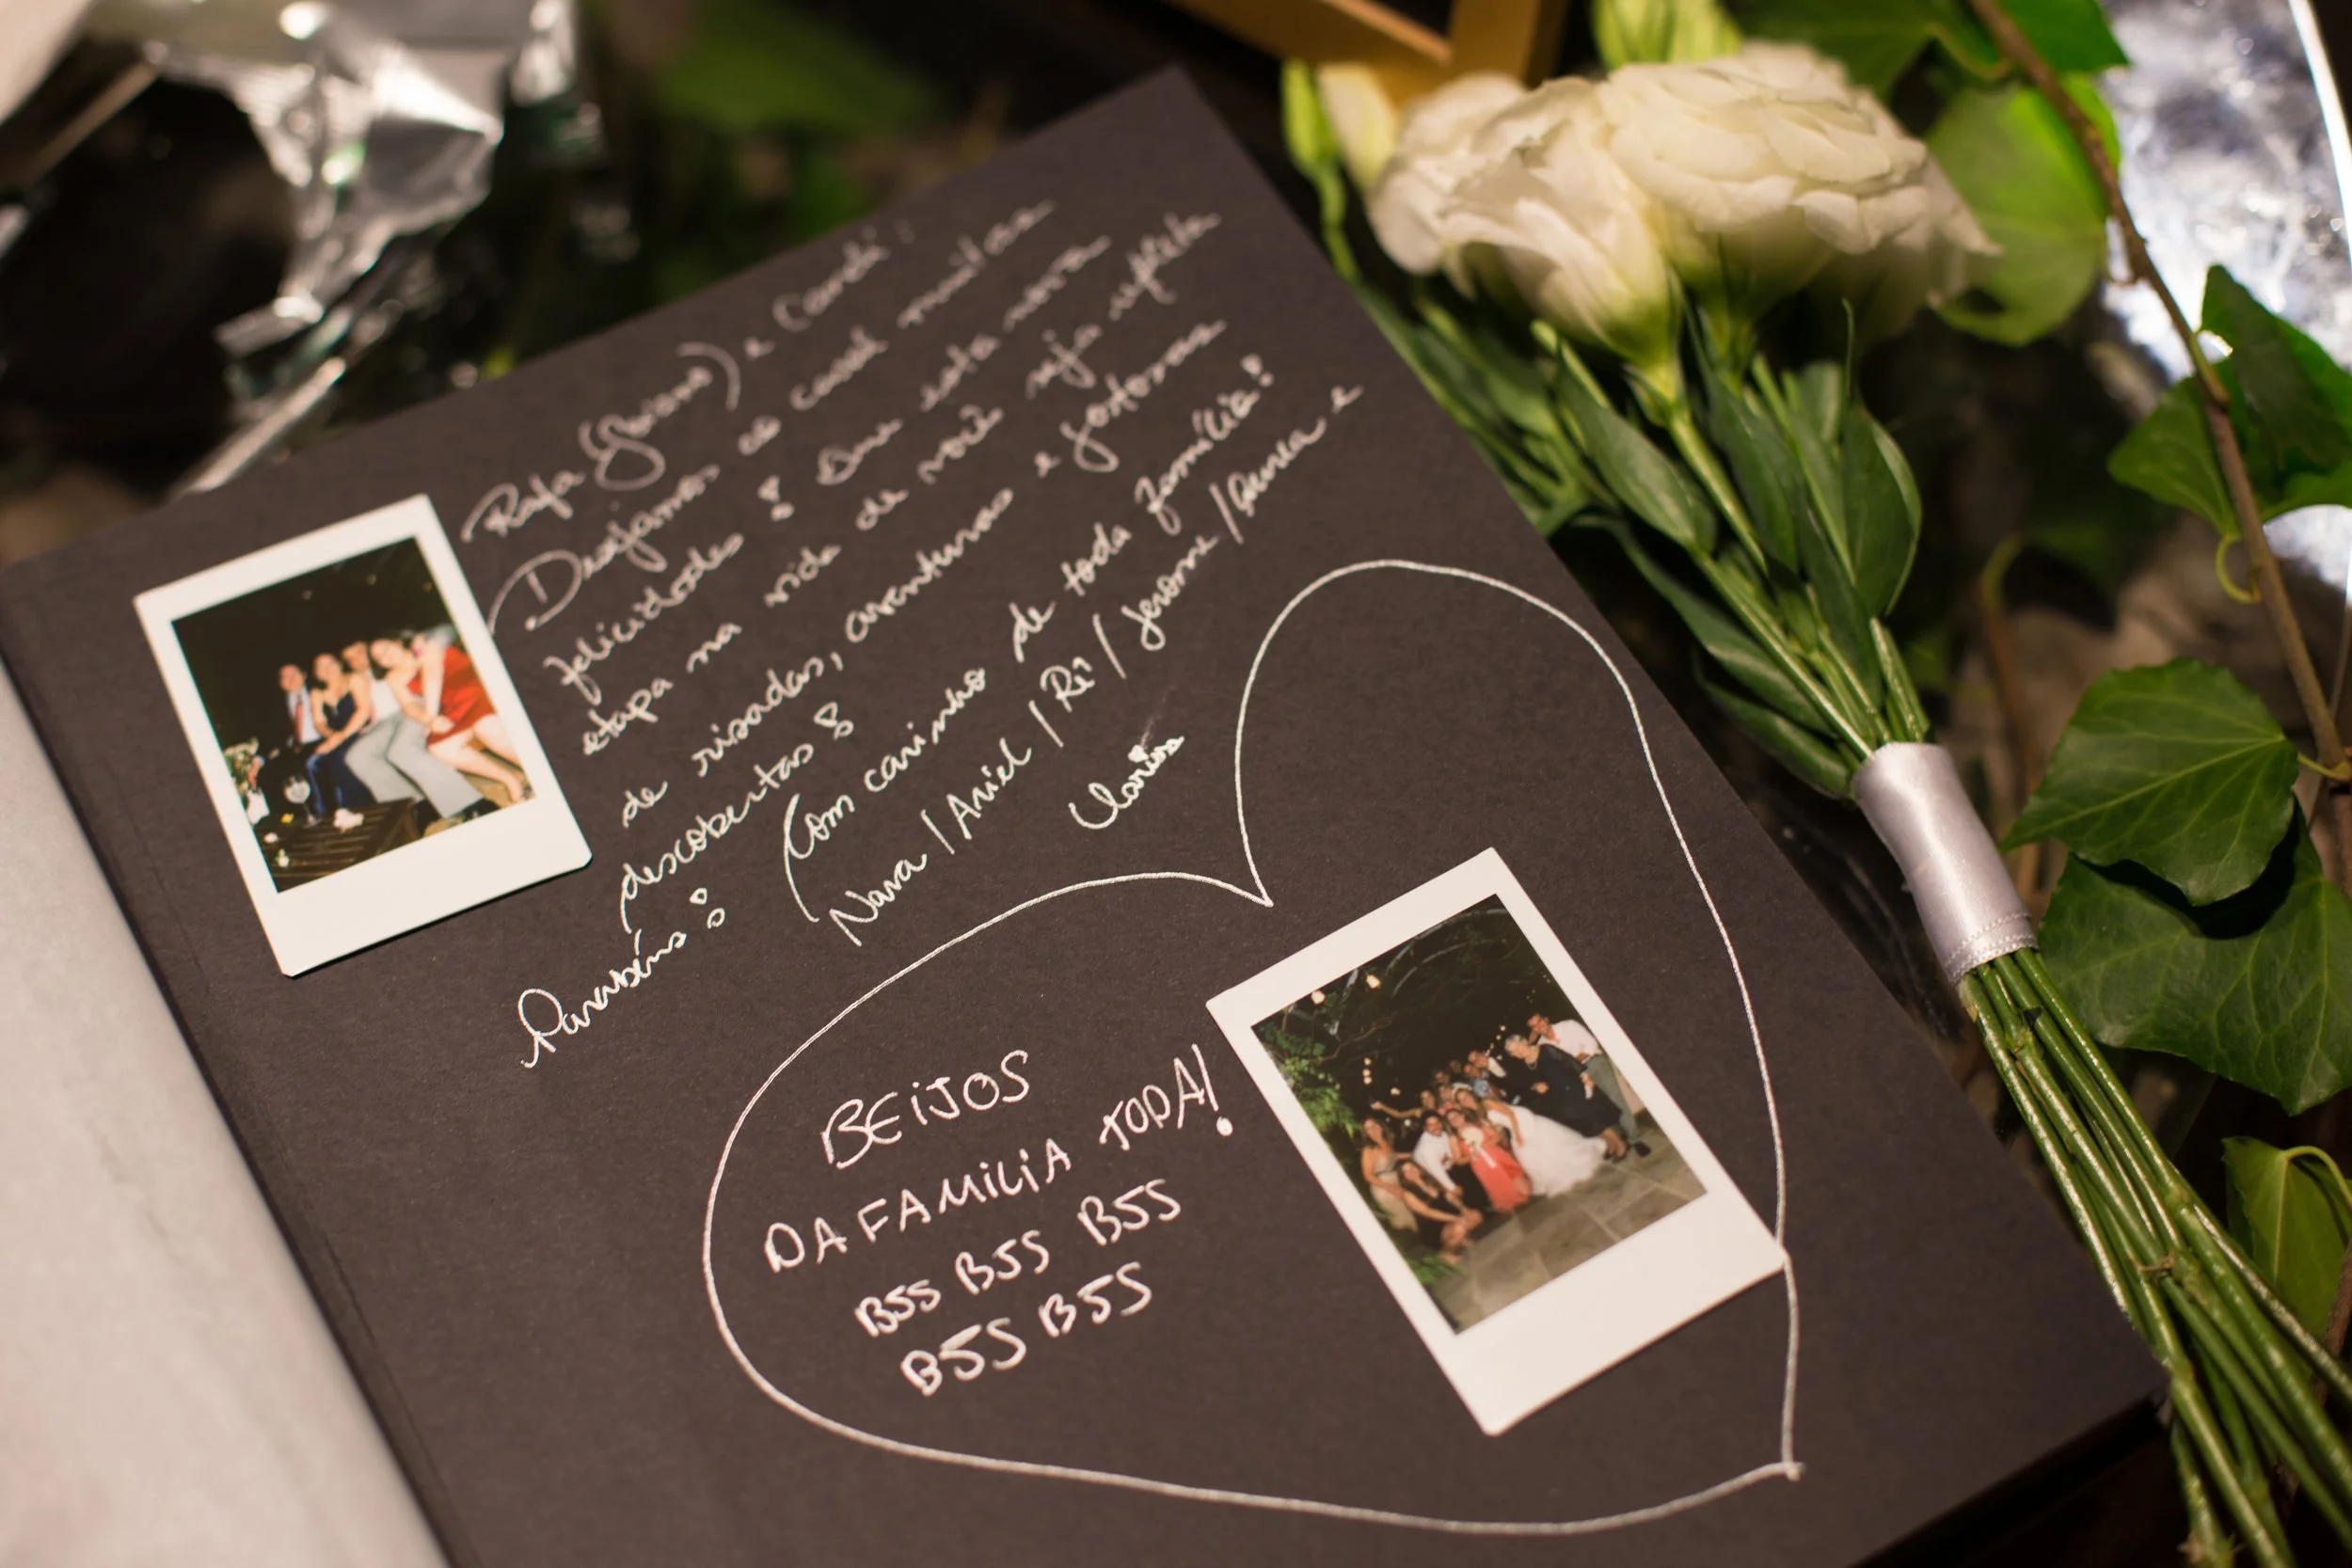 Rafa e
Desejamos ao casal muitas
felicidades! Que esta nova
etapa na vida de vocês seja repleta
de risadas, aventuras e gostosas
descobertas!
Parabéns! Com carinho de toda família!
Nara / Ariel / Ri / Jerome / Aurea e
Clarissa
BEIJOS
DA FAMILIA TODA!
BJS BJS BJS
BJS BJS